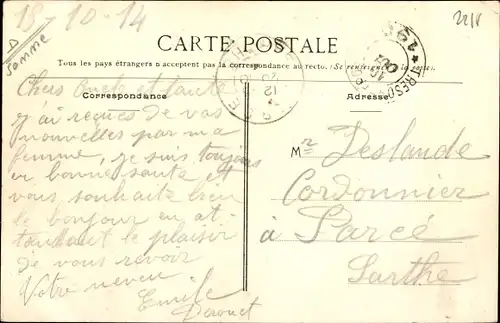 18-10-14
Somme
CARTE POSTALE
Tous les pays étrangers n'acceptent pas la correspondance au recto. (Se renseigner à la poste).
Correspondance
Adresse
Chers Oncle et tante
j'ai reçues de vos
nouvelles par ma
femme, je suis toujours
en bonne sante et
vous souhaite bien
le bonjour en at-
tendant le plaisir
de vous revoir
Votre neveu
Emile
Mr Deslande
Cordonnier
à Parcé
Sarthe